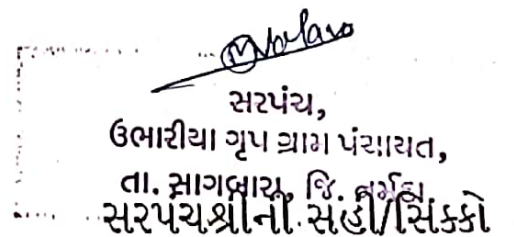 સરપંચ,
ઉભારીયા ગૃપ ગ્રામ પંચાયત,
તા. સાગબારા, જિ. નર્મદા
સરપંચશ્રીની સહી/સિક્કો